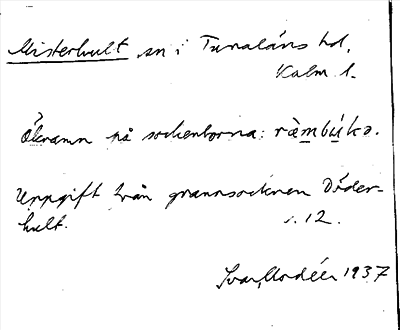 Misterhult sn i Tunaläns hd,
Kalm l.
Öknamn på sockenborna: ràmbúkɔ.
Uppgift från grannsocknen Döder-
hult. s. 12.
Ivar Modéer 1937